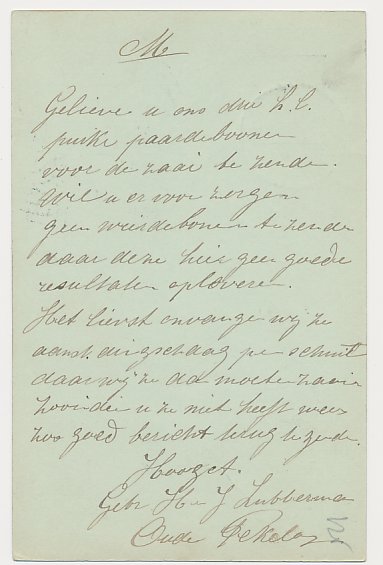 M
Gelieve u ons drie h.l.
puike paardeboonen
voor de zaai te zenden.
Wil u er voor zorgen
geen wierdebonen te zenden
daar deze hier geen goede
resultaten opleveren.
Het liefst onvangen wij ze
aanst. dingsdaag per schuit
daar wij ze dan moeten zaaien
Mooi die u ze niet heeft wees
zoo goed bericht terug te zenden.
Hoogt.
Gebr H en J Lubberman
Oude Pekela